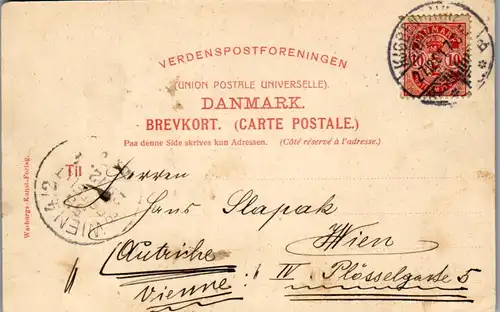 VERDENSPOSTFORENINGEN
(UNION POSTALE UNIVERSELLE).
DANMARK.
BREVKORT. (CARTE POSTALE.)
Paa denne Side skrives kun Adressen. (Côté réservé à l'adresse.)
DANMARK
10 10
KJØBENHAVN
Til
Herren
Hans Slapak
Wien
(Autriche IV Plösselgasse 5
Vienne:
WIEN 4/2
Warburgs Kunst-Forlag.